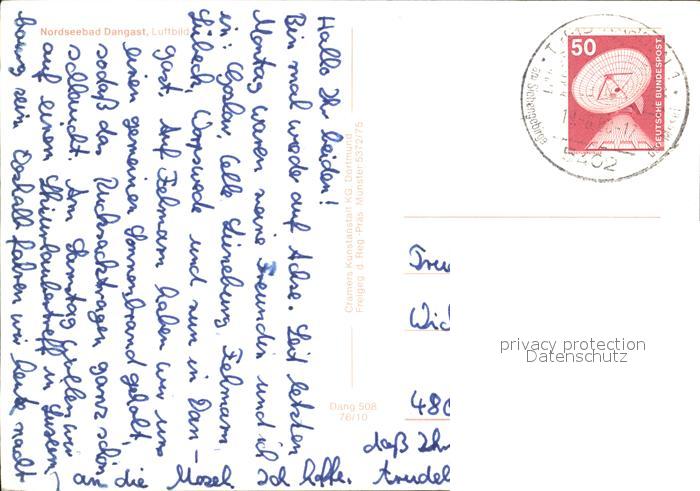 Nordseebad Dangast, Luftbild
Hallo Ihr beiden!
Bin mal wieder auf Achse. Seit letzten
Montag waren meine Freundin und ich
in: Goslar, Celle, Lüneburg, Fehmarn,
Lübeck, Worpswede und nun in Dan-
gast. Auf Fehmarn haben wir uns
einen gemeinen Sonnenbrand geholt,
sodaß das Rucksacktragen ganz schön
schlaucht. Am Samstag wollen wir
auf einem Skiurlaubertreff in
sein. Deshalb fahren wir heute nacht
an die Mosel. Ich hoffe,
daß Ihr
Cramers Kunstanstalt KG, Dortmund
Freigeg. d. Reg.-Präs. Münster 5372/75
Dang 508
76/10
50
DEUTSCHE BUNDESPOST
5202
480
privacy protection
Datenschutz